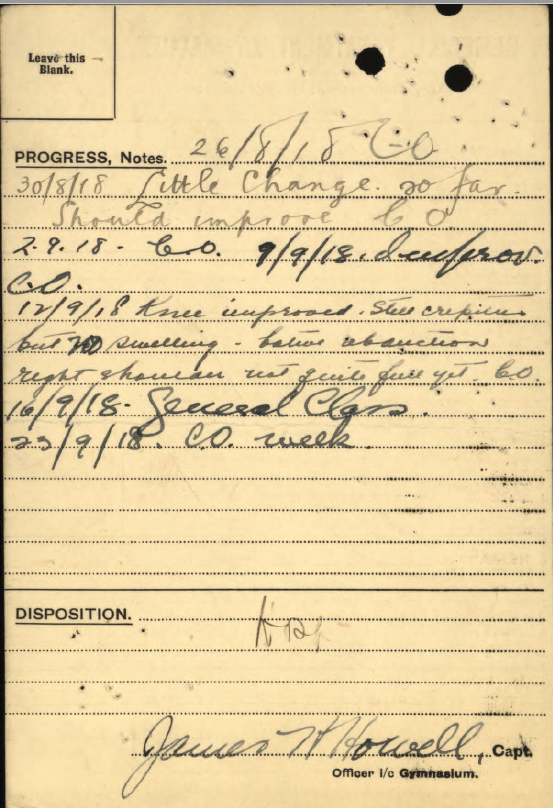 Leave this
Blank.
PROGRESS, Notes. 26/8/18 C.O
30/8/18 Little Change so far.
Should improve C O
2.9.18. C.O. 9/9/18. Improv.
C.O.
12/9/18 Knee improved. Still crepitus
but no swelling - active abduction
right not quite full yet. C.O.
16/9/18. General Class.
23/9/18. C.O. week
DISPOSITION.
James H Howell, Capt.
Officer i/c Gymnasium.